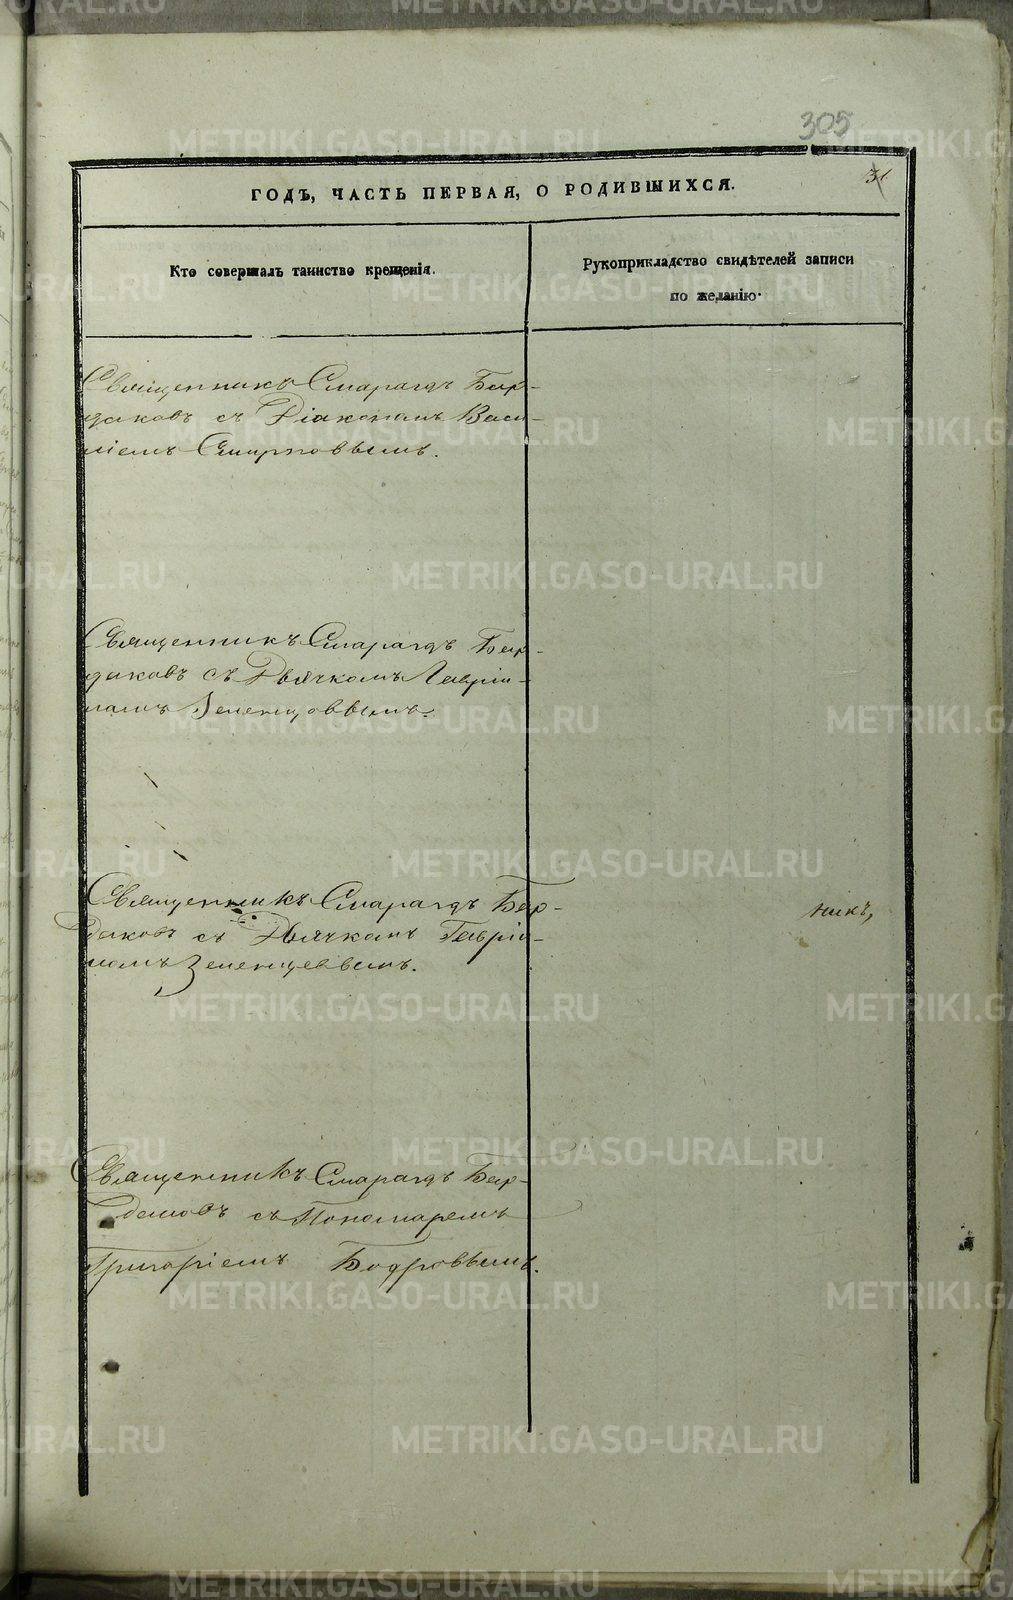 305
31
ГОДЪ, ЧАСТЬ ПЕРВАЯ, О РОДИВШИХСЯ.
Кто совершалъ таинство крещенія.
Рукоприкладство свидѣтелей записи
по желанію.
Священникъ Смарагдъ Бир-
даковъ съ Діакономъ Васи-
ліемъ Смирновымъ.
Священникъ Смарагдъ Бир-
даковъ съ Дьячкомъ Гаврі-
ломъ Зеленцоввымъ.
Священникъ Смарагдъ Бир-
даковъ съ Дьячкомъ Гаврі-
ломъ Зеленцоввымъ.
никъ,
Священникъ Смарагдъ Бир-
даковъ съ Пономаремъ
Григоріемъ Бодровымъ.
METRIKI.GASO-URAL.RU